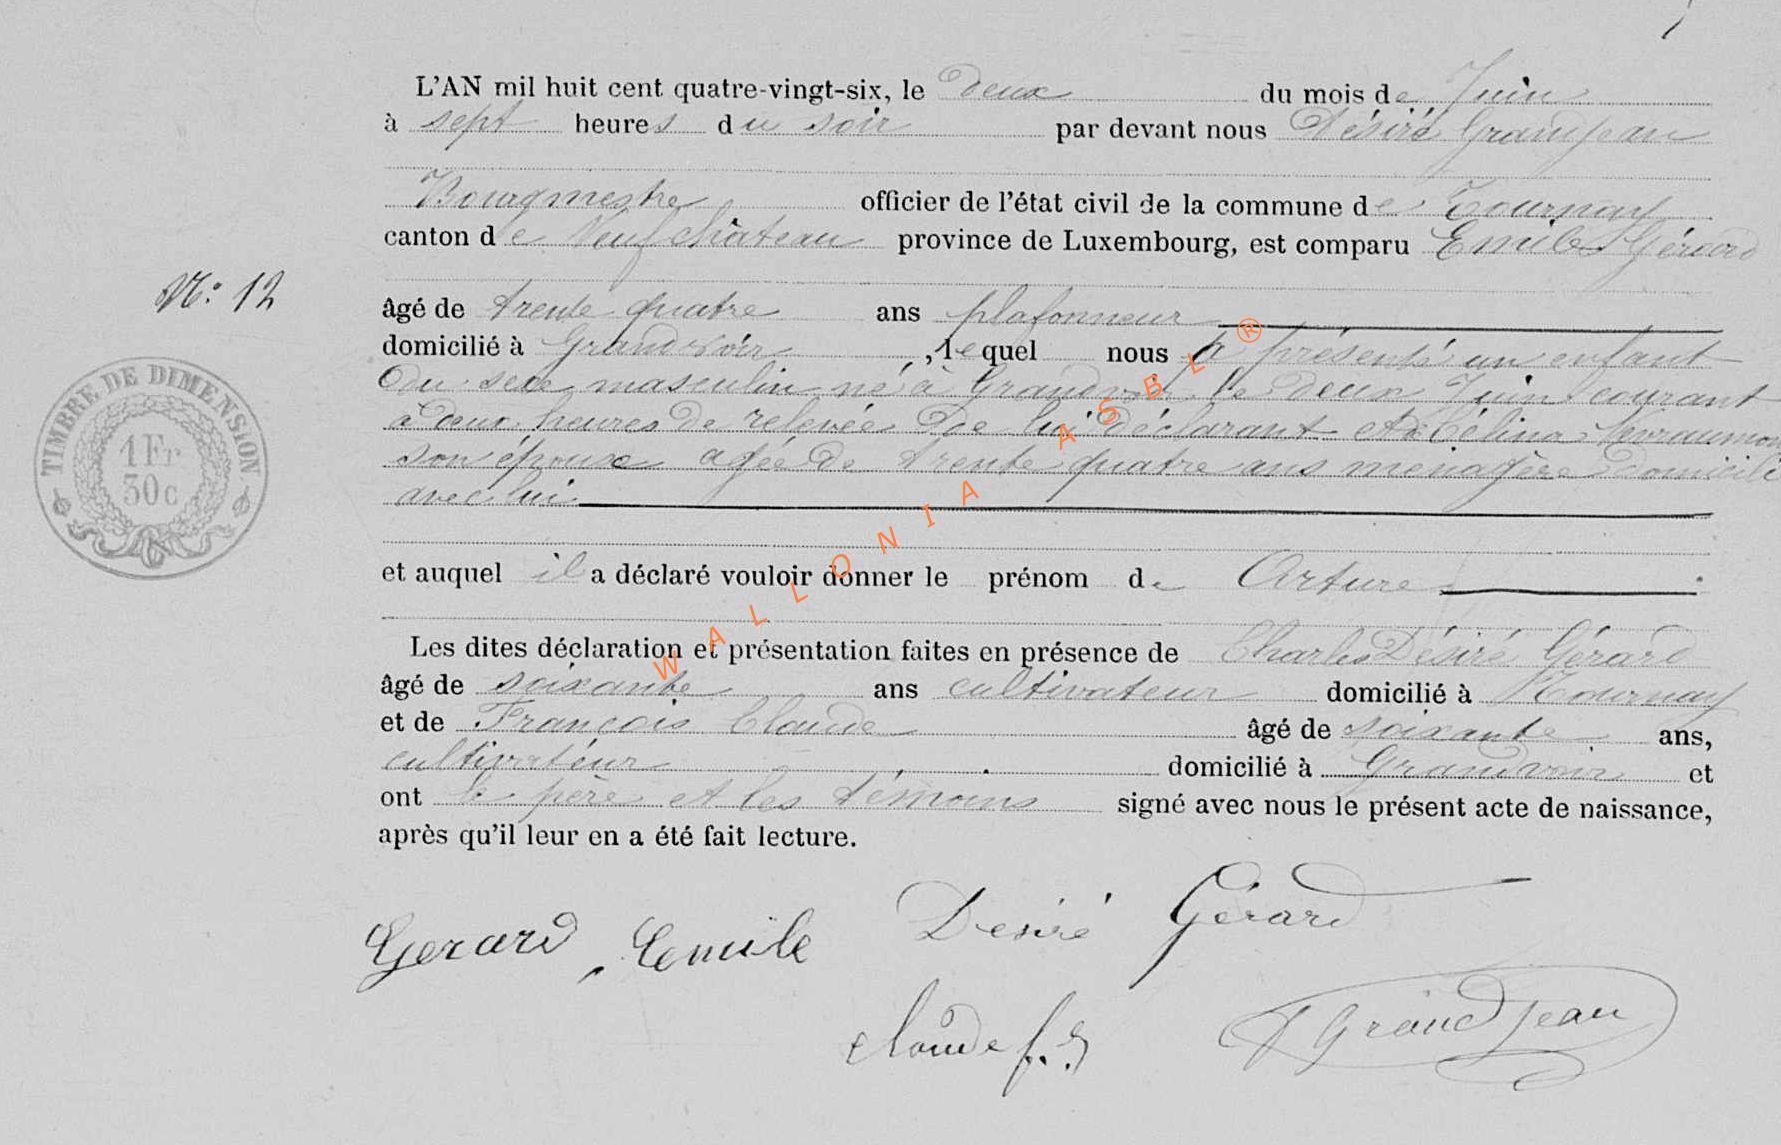 L'AN mil huit cent quatre-vingt-six, le deux du mois de Juin
à sept heures du soir par devant nous Désiré Grandjean
Bourgmestre officier de l'état civil de la commune de Tournay
canton de Neufchâteau province de Luxembourg, est comparu Emile Gérard
N: 12
âgé de trente quatre ans plafonneur
domicilié à Grandvoir, lequel nous a présenté un enfant
du sexe masculin né à Grandvoir, le deux Juin courant
à deux heures de relevée de lui déclarant et de Célina
son épouse agée de trente quatre ans ménagère
avec lui
TIMBRE DE DIMENSION
1 Fr
30 c
et auquel il a déclaré vouloir donner le prénom de Arture
Les dites déclaration et présentation faites en présence de Charles Désiré Gérard
âgé de soixante ans cultivateur domicilié à Tournay
et de François Claude âgé de soixante ans,
cultivateur domicilié à Grandvoir et
ont le père et les témoins signé avec nous le présent acte de naissance,
après qu'il leur en a été fait lecture.
Gerard, Emile Desiré Gérard
Claude f. Grandjean
WALLONIA ASBL ®